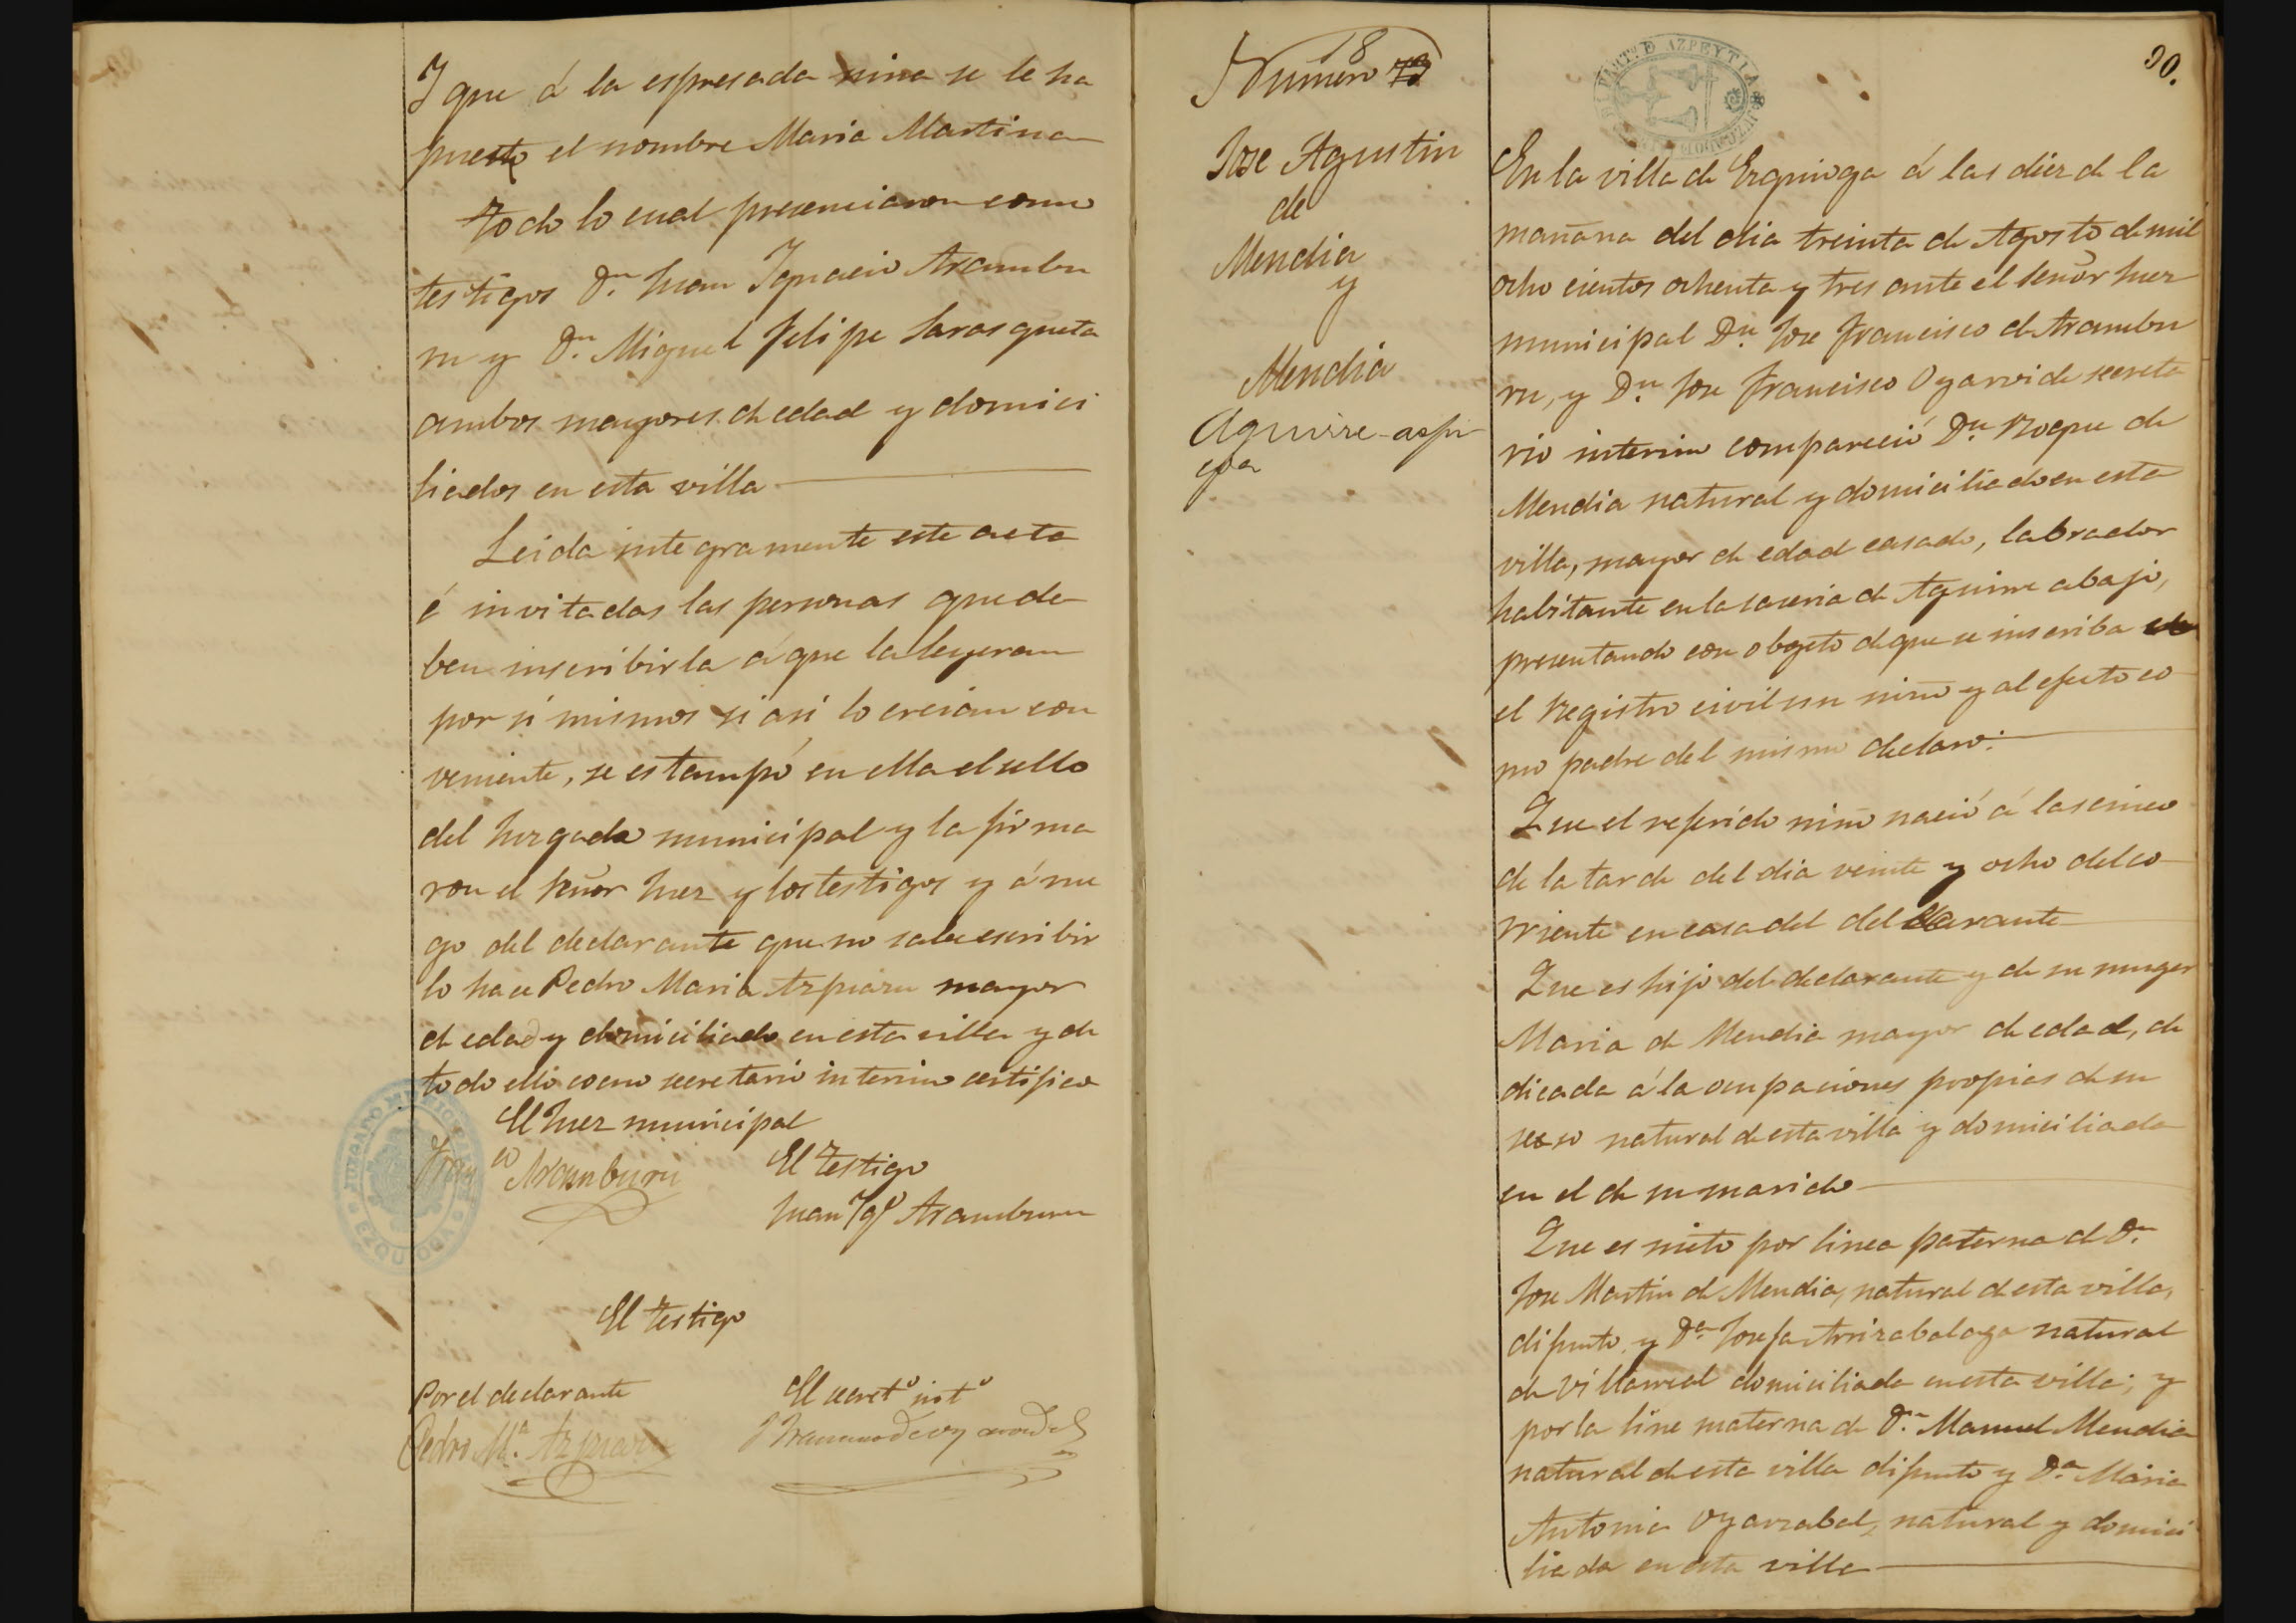 Y que á la espresada nina se le ha
puesto el nombre Maria Martina
Todo lo cual presenciaron como
testigos Dn. Juan Ygnacio Arambu
ru y Dn. Miguel Felipe Sarasqueta
ambos mayores de edad y domici
liados en esta villa
Leida integramente este acta
é invitadas las personas que de
ben inscribirla á que la leyeran
por si mismos si asi lo creian con
veniente, se estampó en ella el sello
del Juzgado municipal y la firma
ron el señor Juez y los testigos y á rue
go del declarante que no sabe escribir
lo hace Pedro Maria Azpiazu mayor
de edad y domiciliado en esta villa y de
todo ello como secretario interino certifico
El Juez municipal
Franco Aramburu
El Testigo
Juan Ygo Aramburu
El Testigo
Por el declarante
El secreto into
Pedro Ma. Azpiazu
JUZGADO MUNICIPAL
EZQUIOGA
Numero 18 73
Jose Agustin
de
Mendia
y
Mendia
Aguirre-aspi
AZPEYTIA
90.
En la villa de Ezquioga á las diez de la
mañana del dia treinta de Agosto de mil
ocho cientos ochenta y tres ante el señor Juez
municipal Dn. Jose Francisco de Arambu
ru, y Dn. Jose Francisco Oyarvide secreta
rio interino compareció Dn. Roque de
Mendia natural y domiciliado en esta
villa, mayor de edad casado, labrador
habitante en la caseria de Aguirre abajo,
presentando con obgeto de que se inscriba en
el Registro civil un nino y al efecto co
mo padre del mismo declaro:
Que el referido nino nació á las cinco
de la tarde del dia veinte y ocho del co
rriente en casa del declarante
Que es hijo del declarante y de su muger
Maria de Mendia mayor de edad, de
dicada á la ocupaciones propias de su
sexo natural de esta villa y domiciliada
en el de su marido
Que es nieto por linea paterna de Dn.
Jose Martin de Mendia, natural de esta villa,
difunto y Da. Josefa Arrizabalaga natural
de Villarreal domiciliada en esta villa; y
por la line materna de Dn. Manuel Mendia
natural de esta villa difunto y Da. Maria
Antonia Oyarzabal, natural y domici
liada en esta villa